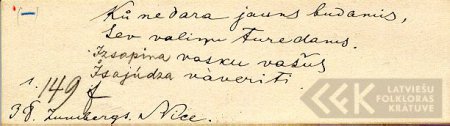 Kū nedara jauns budams,
Sev valiņu turedams.
Izsapina vasku vašus
Īsajūdza vaveriti.
1.
149
38. Zumbergs. Nīce.
LATVIEŠU
FOLKLORAS
KRĀTUVE